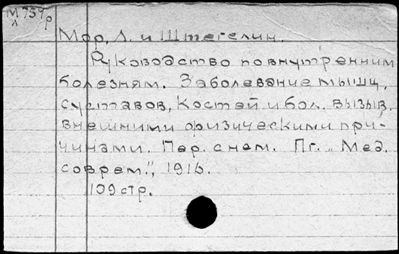 М 739р
л
Мор, Л. и Штегелин.
Руководство по внутренним
болезням. Заболевание мышц,
суставов, костей и бол. вызыв.
внешними физическими при-
чинами. Пер. с нем. Пг. „Мед.
соврем.", 1916.
109 стр.